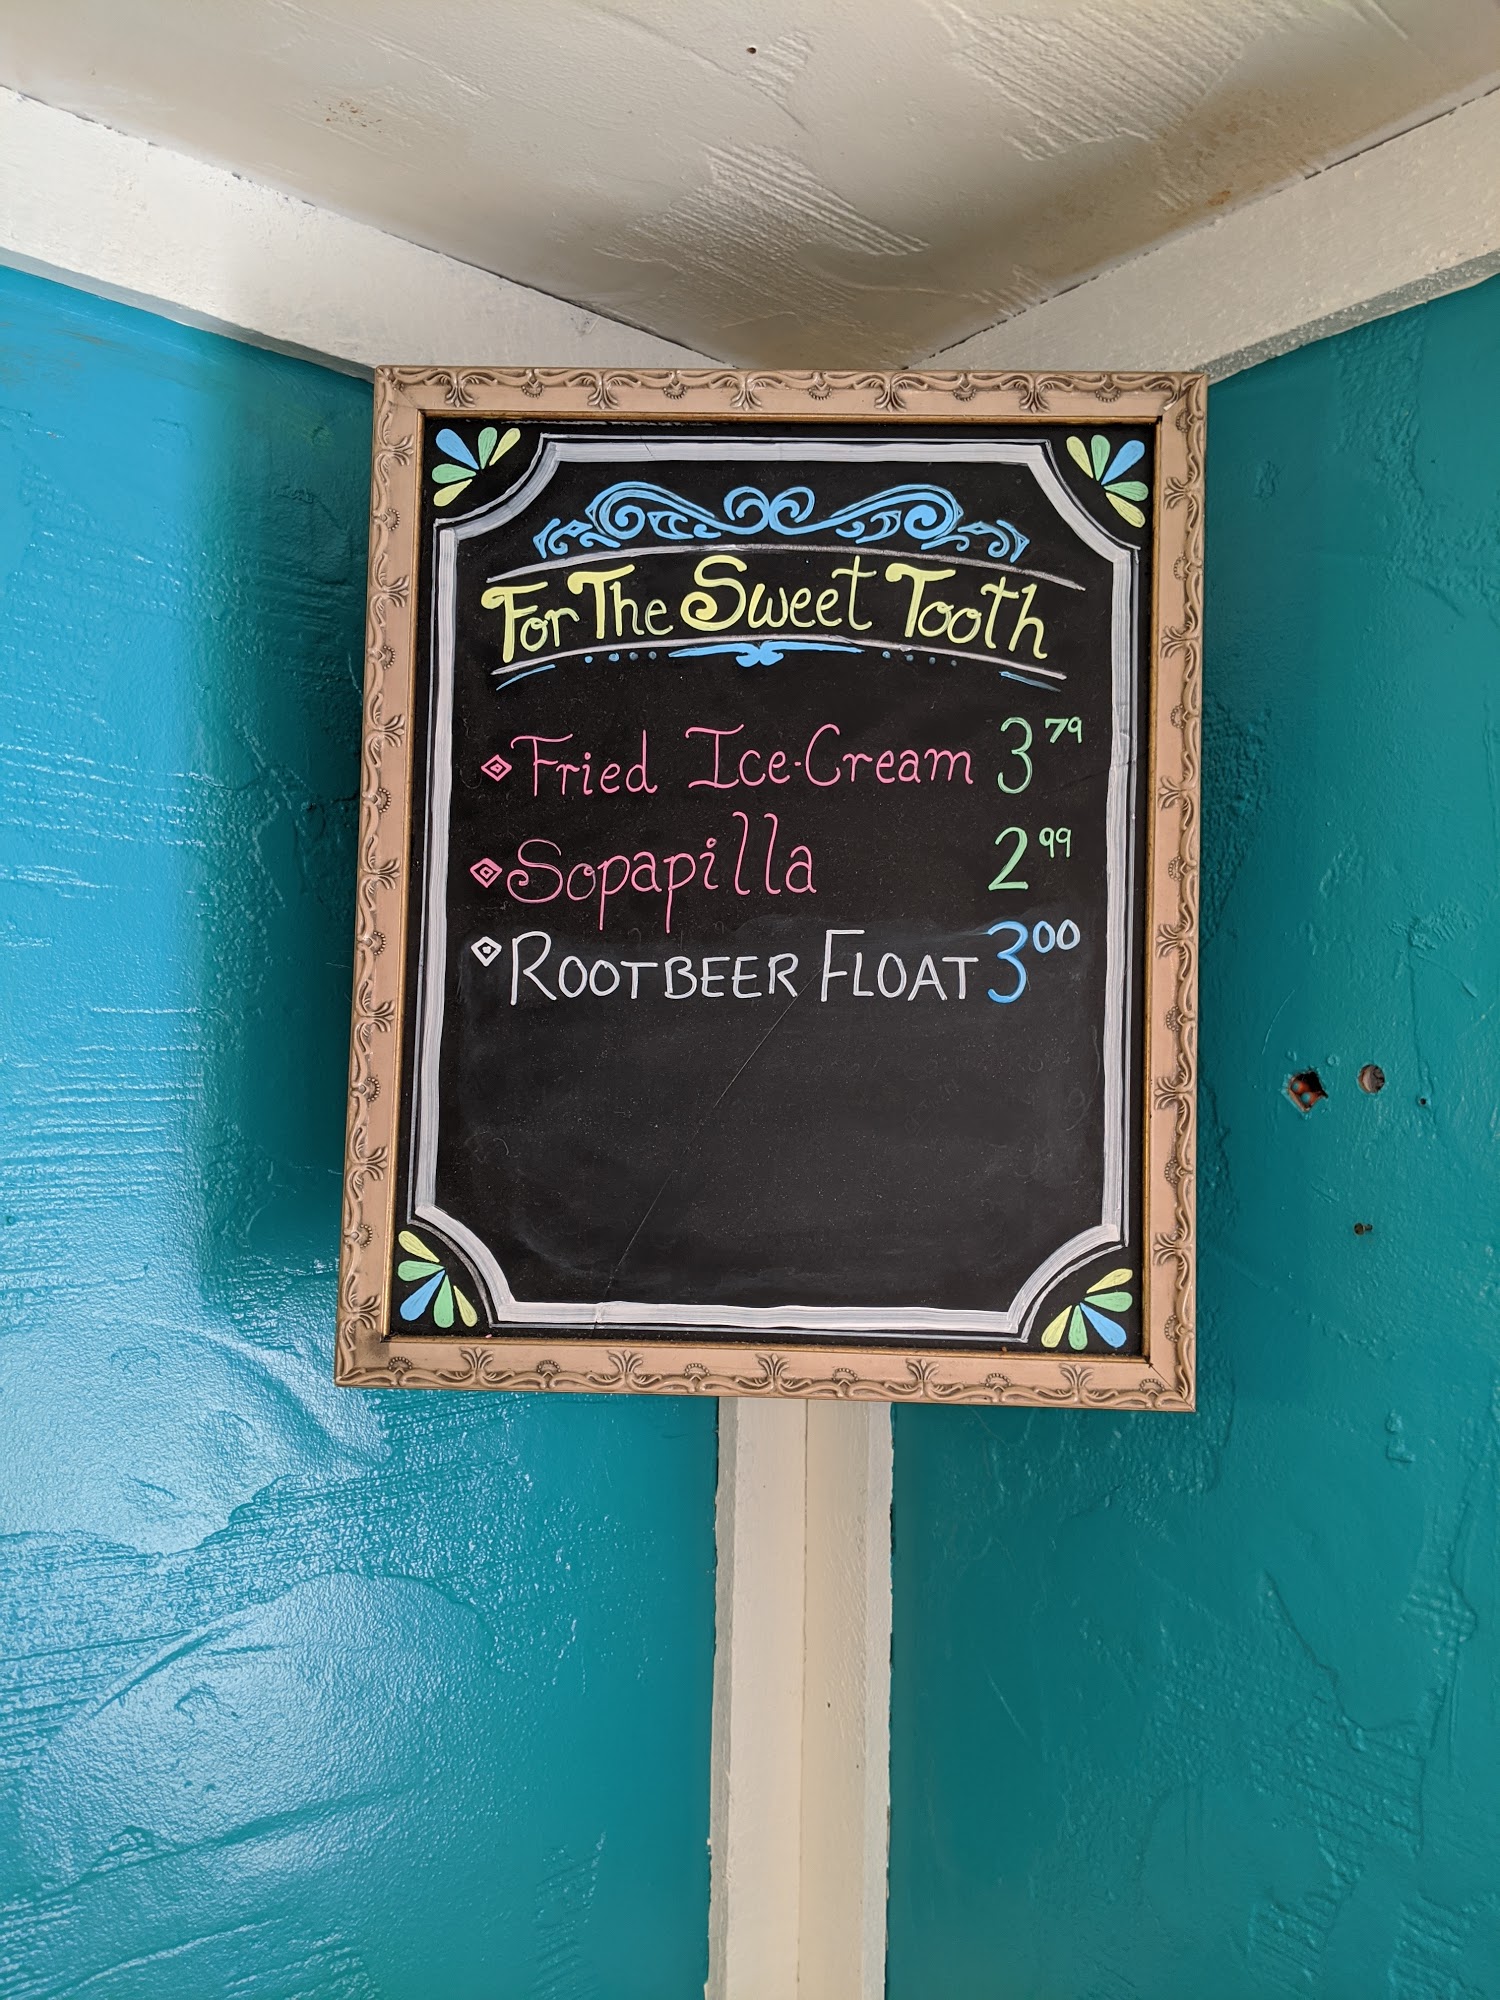 For The Sweet Tooth
Fried Ice-Cream 3 79
Sopapilla 2 99
ROOTBEER FLOAT 3 00